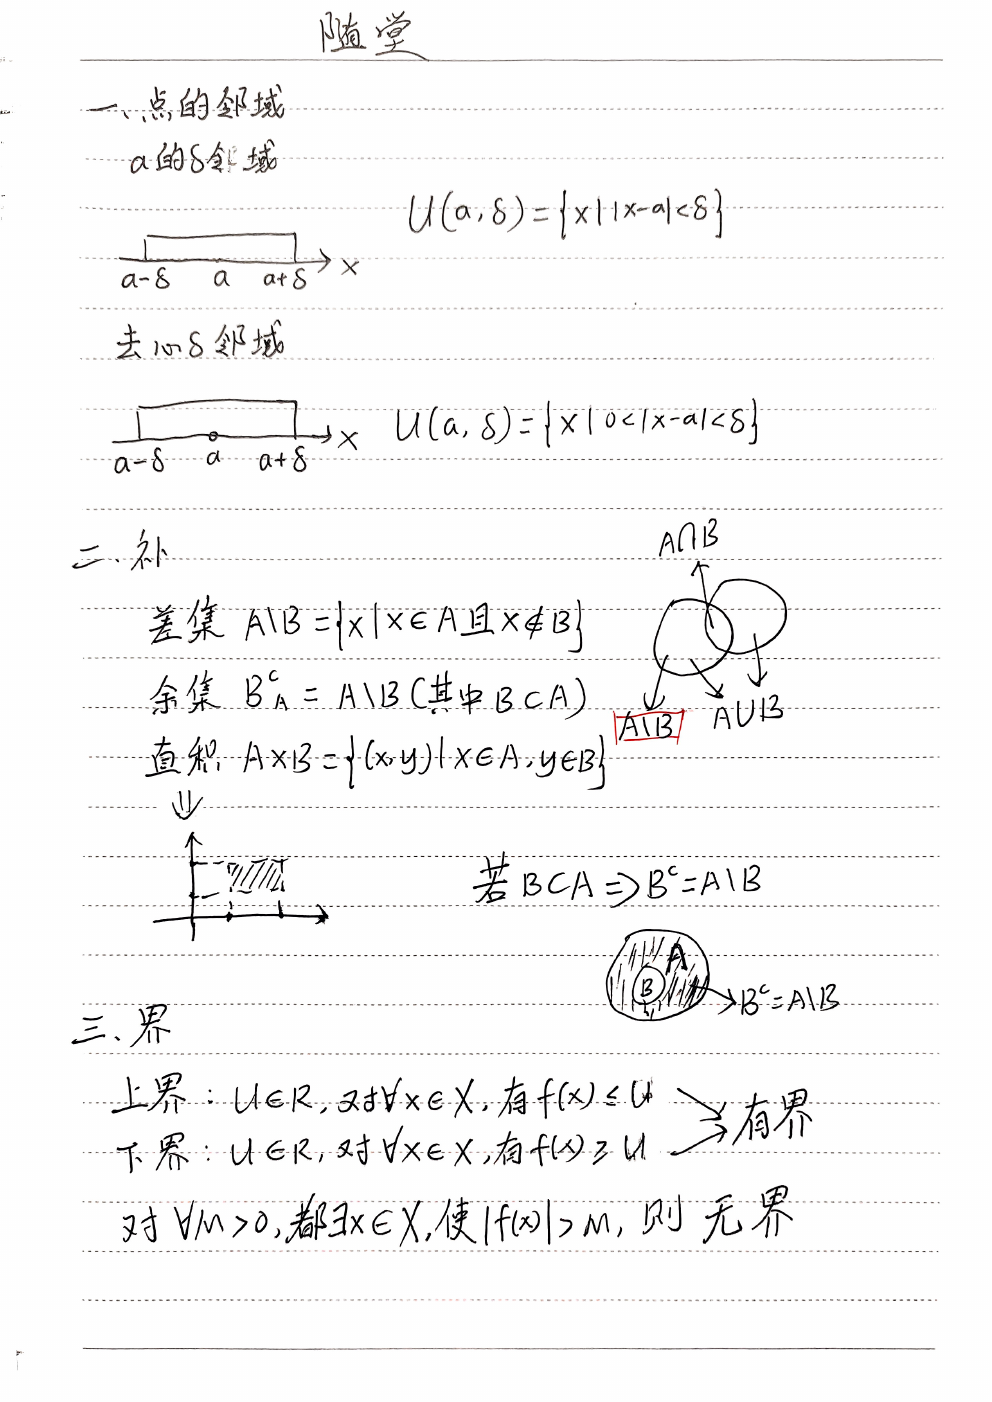 随堂
一、点的邻域
a的δ邻域
U(a,δ)={x||x-a|<δ}
a-δ a a+δ x
去心δ邻域
U(a,δ)={x|0<|x-a|<δ}
a-δ a a+δ x
二、补
A∩B
差集 A\B={x|x∈A且x∉B}
余集 B^c_A = A\B(其中B⊂A)
A\B A∪B
直积 A×B={(x,y)|x∈A,y∈B}
⇓
若B⊂A⇒B^c=A\B
A
B
B^c=A\B
三、界
上界:U∈R,对∀x∈X,有f(x)≤U
下界:U∈R,对∀x∈X,有f(x)≥U
有界
对∀M>0,都∃x∈X,使|f(x)|>M,则无界